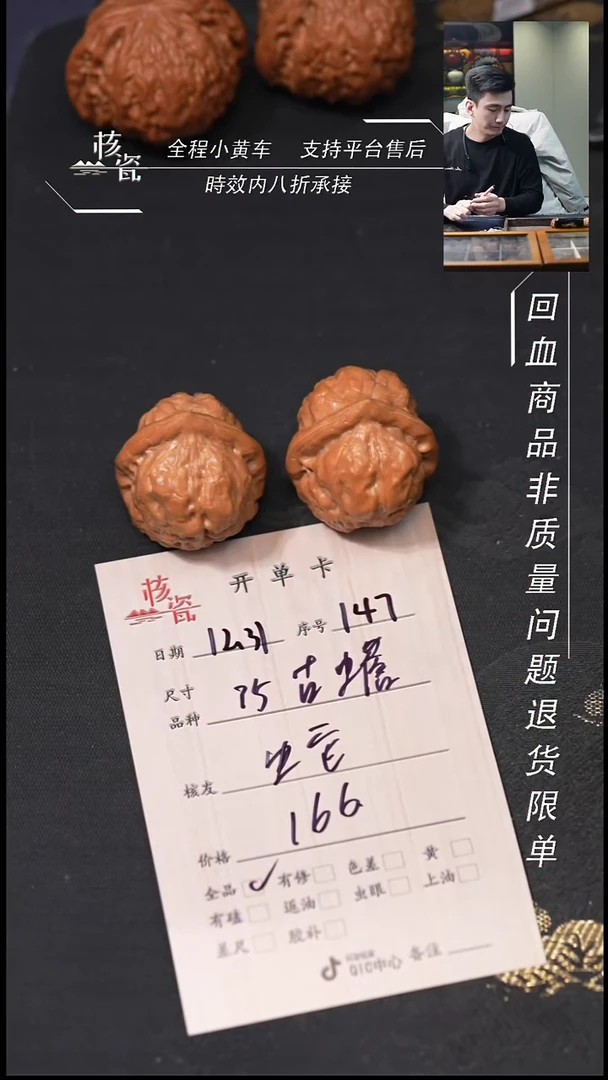 核瓷
全程小黄车 支持平台售后
時效内八折承接
回血商品非质量问题退货限单
核瓷
开单卡
日期 1231 序号 147
尺寸 35 古蟾
品种
核友
价格 166
全品 ✓ 有修 色差 黄
有磕 返油 虫眼 上油
差尺 胶补
QIC中心 备注